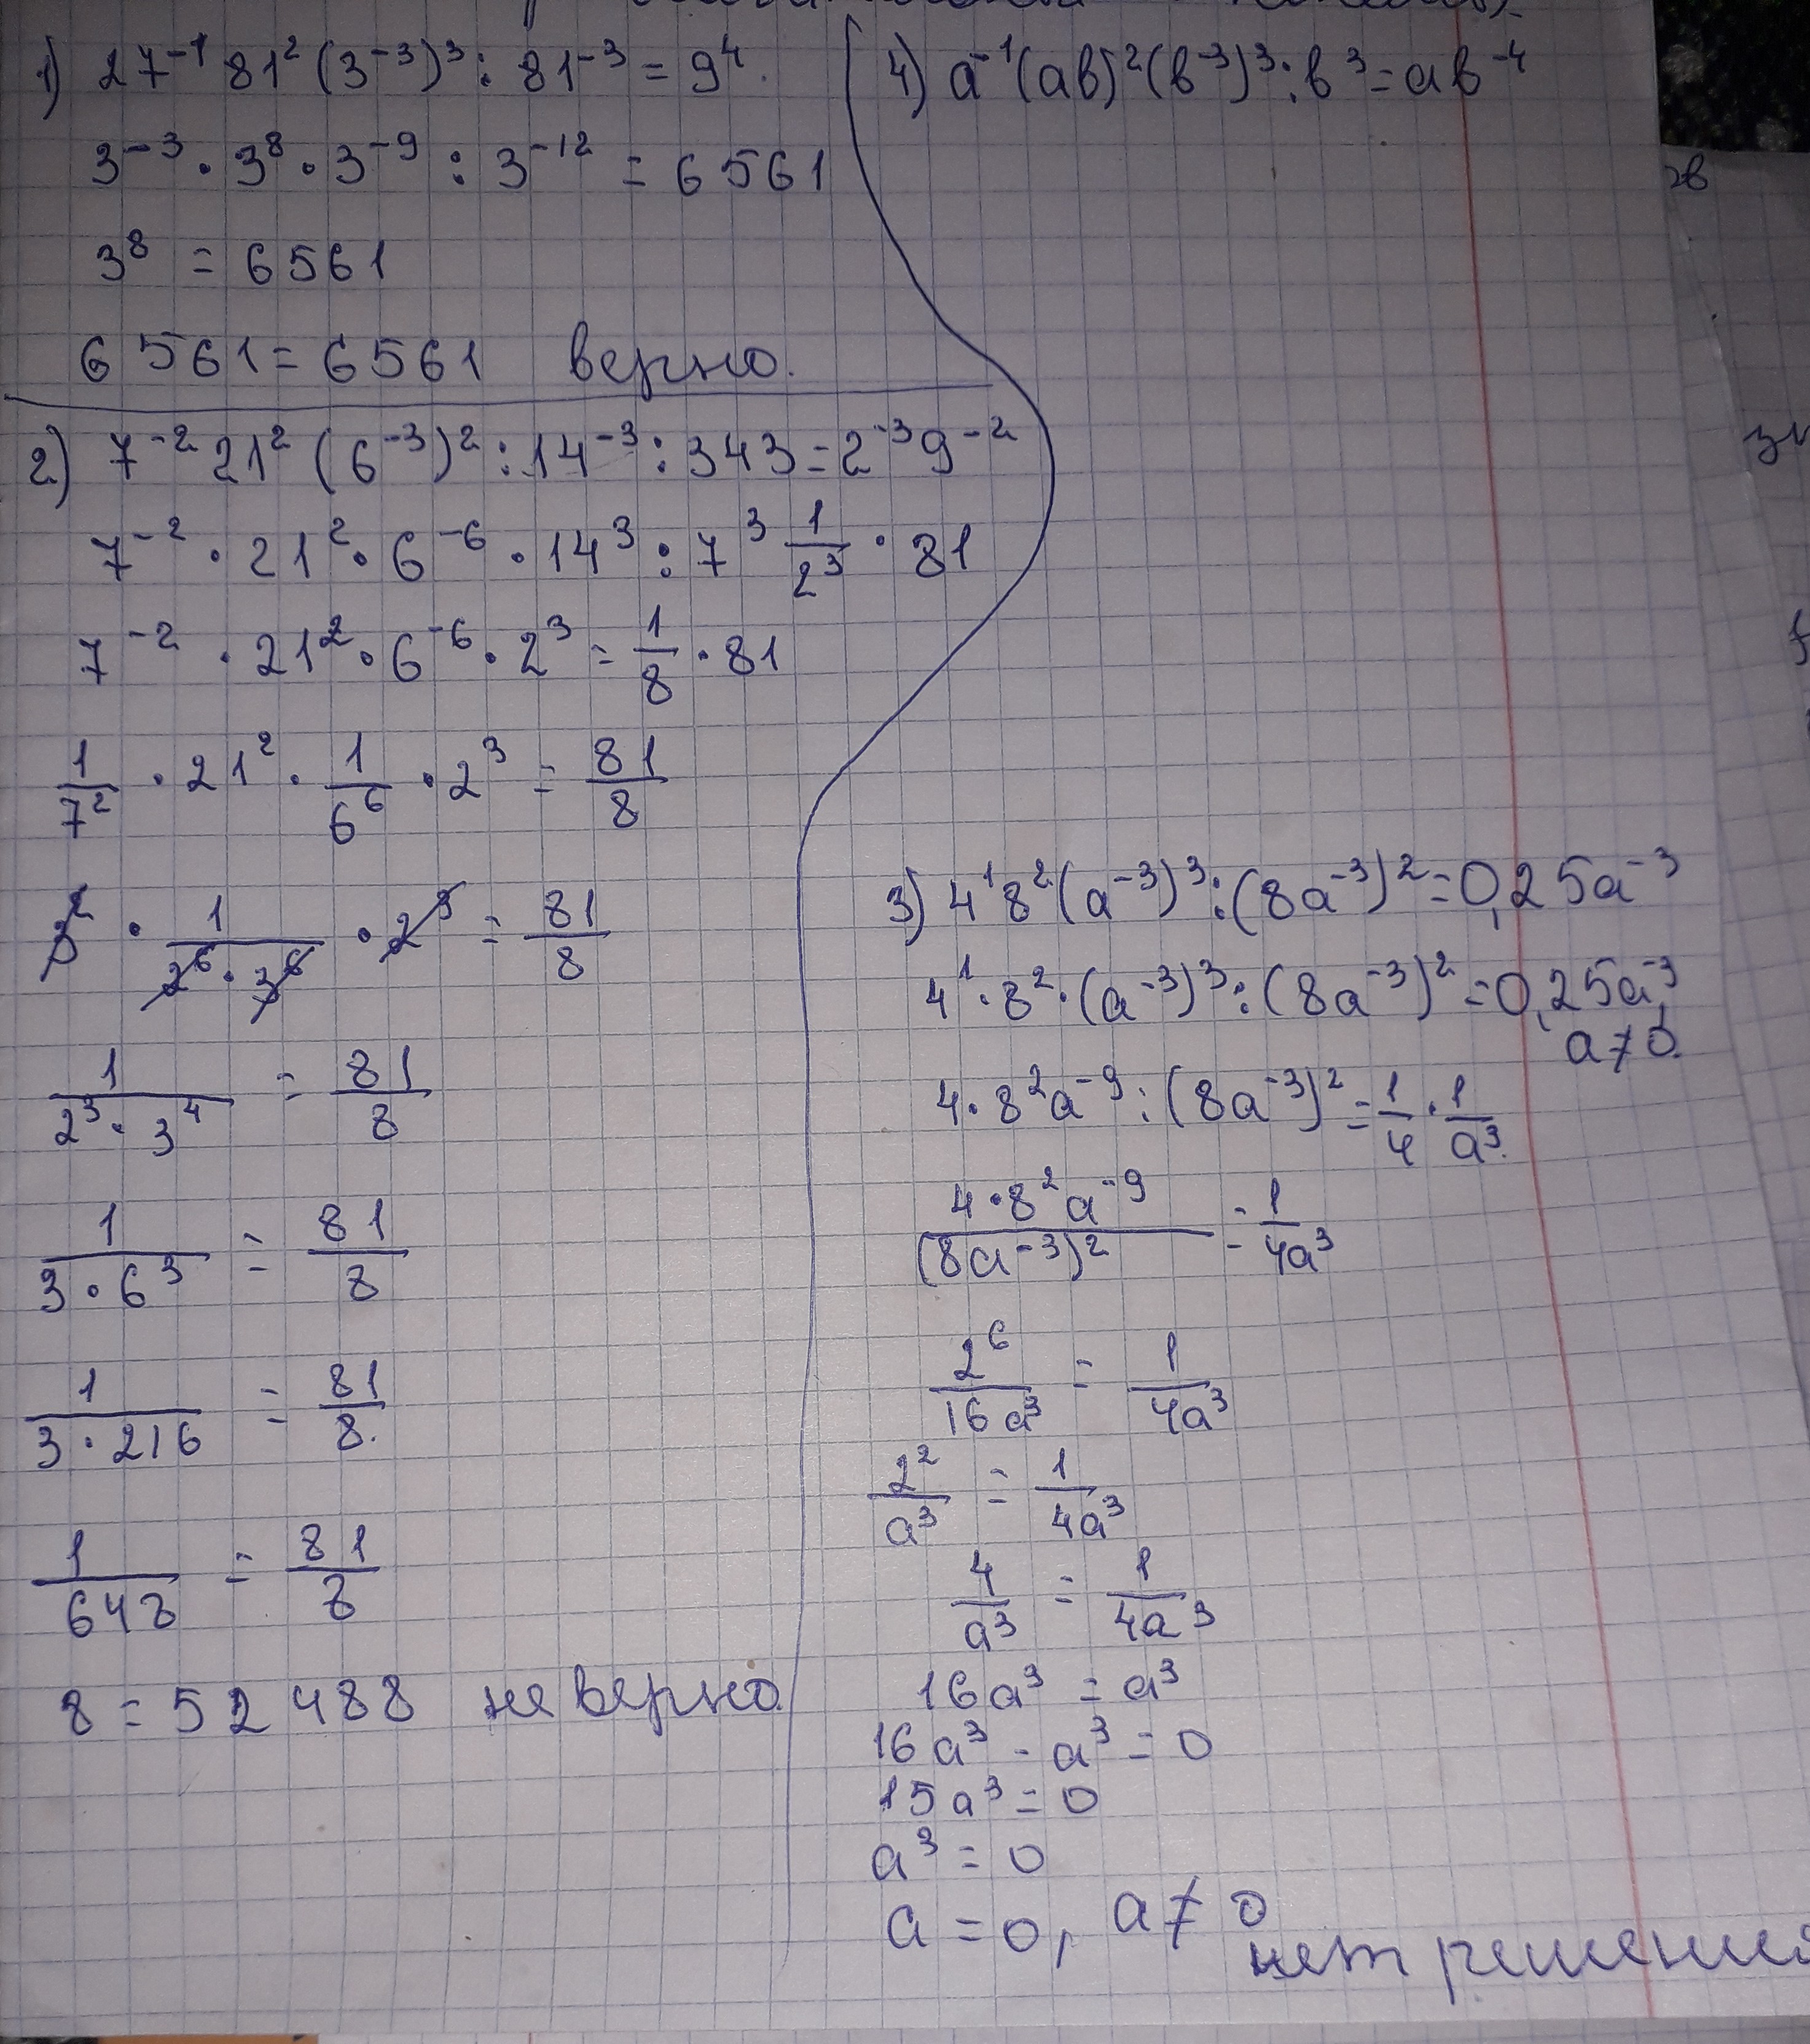 1) 27⁻¹ 81² (3⁻³)³ : 81⁻³ = 9⁴.
3⁻³ · 3⁸ · 3⁻⁹ : 3⁻¹² = 6561
3⁸ = 6561
6561 = 6561 верно.
2) 7⁻² 21² (6⁻³)² : 14⁻³ : 343 = 2⁻³ 9⁻²
7⁻² · 21² · 6⁻⁶ · 14³ : 7³ 1/2³ · 81
7⁻² · 21² · 6⁻⁶ · 2³ = 1/8 · 81
1/7² · 21² · 1/6⁶ · 2³ = 81/8
3² · 1/(2⁶ · 3⁶) · 2³ = 81/8
1/(2³ · 3⁴) = 81/8
1/(3 · 6³) = 81/8
1/(3 · 216) = 81/8.
1/648 = 81/8
8 = 52488 не верно
4) a⁻¹(ab)²(b⁻³)³ : b³ = ab⁻⁴
3) 4¹ 8² (a⁻³)³ : (8a⁻³)² = 0,25a⁻³
4¹ · 8² · (a⁻³)³ : (8a⁻³)² = 0,25a⁻³,
a ≠ 0.
4 · 8² a⁻⁹ : (8a⁻³)² = 1/4 · 1/a³.
4 · 8² a⁻⁹/(8a⁻³)² = 1/4a³
2⁶/16a³ = 1/4a³
2²/a³ = 1/4a³
4/a³ = 1/4a³
16a³ = a³
16a³ - a³ = 0
15a³ = 0
a³ = 0
a = 0, a ≠ 0
нет решений